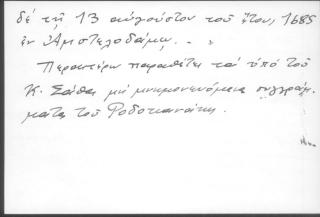 δέ τῇ 13 αὐγούστου τοῦ ἔτους 1685
ἐν Ἀμστελοδάμῳ. . »
Περαιτέρω παραθέτει τά ὑπό τοῦ
Κ. Σάθα μή μνημονευόμενα συγγράμ-
ματα τοῦ Ροδοκανάκη.